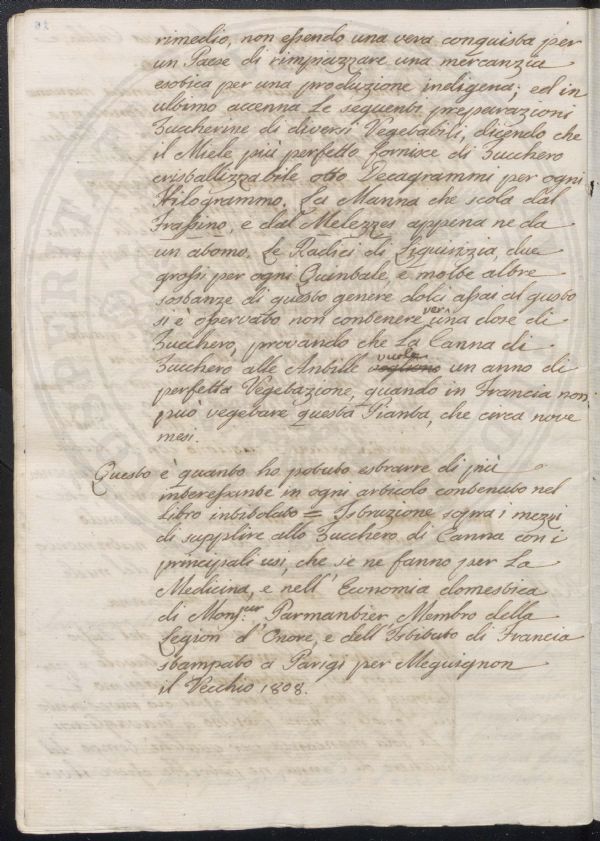 rimedio, non essendo una vera conquista per
un Paese di rimpiazzare una mercanzia
esotica per una produzione indigena; ed in
ultimo accenna le seguenti preparazioni
Zuccherine di diversi Vegetabili, dicendo che
il Miele più perfetto fornisce di Zucchero
cristallizzabile otto Decagrammi per ogni
Kilogrammo. La Manna che scola dal
Frassino, e dal Melezzes appena ne da
un atomo. Le Radici di Liquirizia, due
grossi per ogni Quintale, e molte altre
sostanze di questo genere dolci assai al gusto
si è osservato non contenere veruna dose di
Zucchero, provando che La Canna di
Zucchero alle Antille vogliono vuole un anno di
perfetta Vegetazione, quando in Francia non
può vegetare questa Pianta, che circa nove
mesi.
Questo è quanto ho potuto estrarre di più
interessante in ogni articolo contenuto nel
Libro intitolato = Istruzione sopra i mezzi
di supplire allo Zucchero di Canna con i
principali usi, che se ne fanno per La
Medicina, e nell' Economia domestica
di Mons.eur Parmantier Membro della
Legion d'Onore, e dell'Istituto di Francia
stampato a Parigi per Meguignon
il Vecchio 1808.